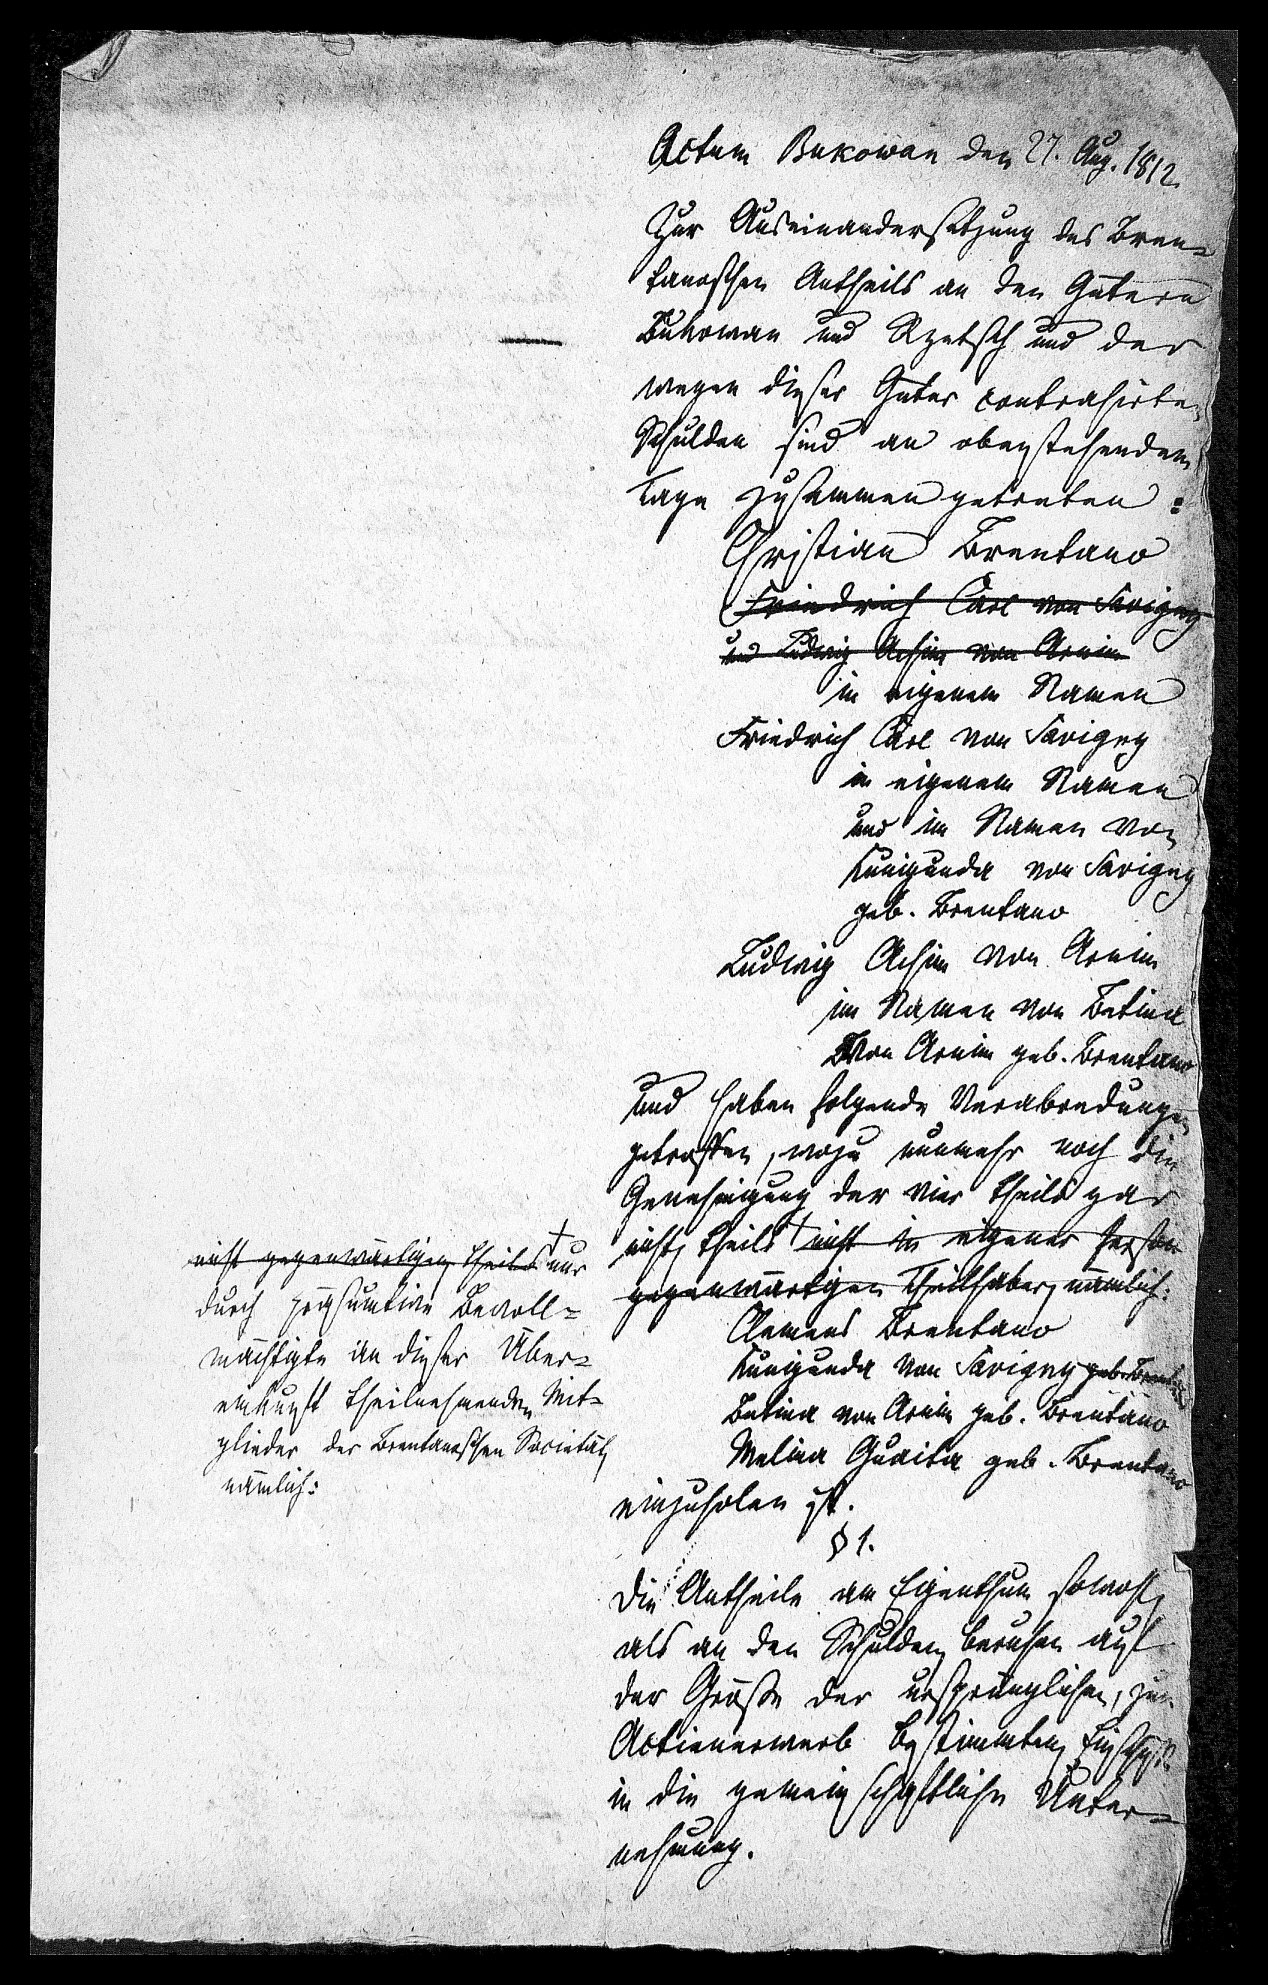 Actum Bukowan den 27. Aug. 1812.
Zur Auseinandersetzung des Bren-
tanoschen Antheils an den Gütern
Bukowan und Rzetsch und der
wegen dieser Güter contrahirten
Schulden sind an obenstehendem
Tage zusammen getreten:
Christian Brentano
Friedrich Carl von Savigny
und Ludwig Achim von Arnim
in eigenem Namen
Friedrich Carl von Savigny
in eigenem Namen
und im Namen von
Kunigunda von Savigny
geb. Brentano
Ludwig Achim von Arnim
im Namen von Betina
von Arnim geb. Brentano
und haben folgende Verabredungen
getroffen, wozu nunmehr noch die
Genehmigung der vier theils gar
nicht, theils + nicht in eigener Person
gegenwärtigen Theilhaber, nämlich:
Clemens Brentano
Kunigunda von Savigny geb. Brentano
Betina von Arnim geb. Brentano
Melina Guaita geb. Brentano
einzuholen ist.
§ 1.
Die Antheile am Eigenthum sowohl,
als an den Schulden beruhen auf
der Größe der ursprünglichen, zum
Actienerwerb bestimmten Einschüsse
in die gemeinschaftliche Unter-
nehmung.
nicht gegenwärtigen theils + nur
durch präsumtive Bevoll-
mächtigte an dieser Über-
einkunft theilnehmenden Mit-
glieder der Brentanoschen Societät,
nämlich: